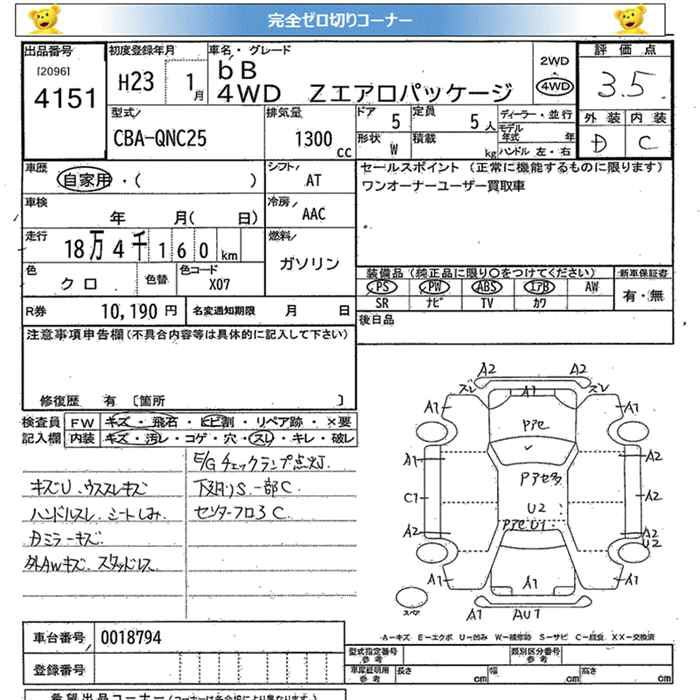 完全ゼロ切りコーナー
出品番号
[2096]
4151
初度登録年月
H23 1月
車名・グレード
bB
4WD Zエアロパッケージ
2WD
4WD
評価点
3.5
外装 内装
D C
型式
CBA-QNC25
排気量
1300 cc
ドア 5
定員 5人
形状 W
積載 kg
ディーラー・並行
モデル年式 年
ハンドル 左・右
車歴
自家用・( )
シフト AT
セールスポイント (正常に機能するものに限ります)
ワンオーナーユーザー買取車
車検
年 月( 日)
冷房 AAC
走行
18万4千160km
燃料 ガソリン
色 クロ
色替
色コード X07
装備品 (純正品に限り○をつけてください)
新車保証書
PS PW ABS エアB AW
SR ナビ TV カワ
有・無
R券 10,190 円
名変通知期限 月 日
後日品
注意事項申告欄 (不具合内容等は具体的に記入して下さい)
修復歴 有 〔箇所 〕
検査員記入欄
FW キズ・飛石・ヒビ割・リペア跡・×要
内装 キズ・汚レ・コゲ・穴・スレ・キレ・破レ
E/Gチェックランプ点灯
キズU、ウススレキズ
下廻りS、一部C
ハンドルスレ、シートしみ
センターフロアC
ドアミラーキズ
外AWキズ、スタッドレス
A2 A2
スレ スレ
A1 A1 A1
Pアセ
A1 A2
Pアセ多
C1 A2
U2
Pアセ U1
A2 A2
U2
A1 A1 A1
スペア
A1 AU1
A-キズ E-エクボ U-凹み W-補修跡 S-サビ C-腐食 XX-交換済
車台番号 0018794
型式指定番号 参考
類別区分番号 参考
登録番号
車庫証明用 参考
長さ cm 幅 cm 高さ cm
希望出品コーナー